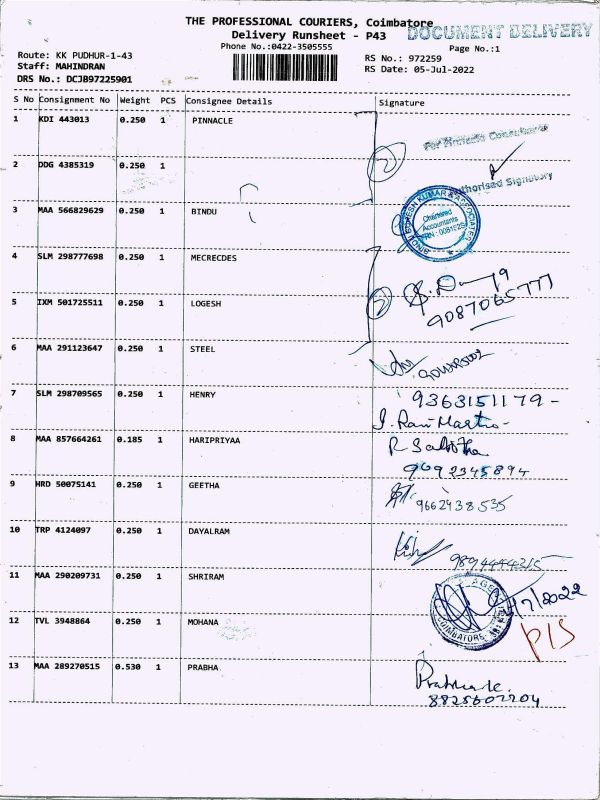 THE PROFESSIONAL COURIERS, Coimbatore
DOCUMENT DELIVERY
Delivery Runsheet - P43
Phone No.:0422-3505555
Page No.:1
Route: KK PUDHUR-1-43
RS No.: 972259
Staff: MAHINDRAN
RS Date: 05-Jul-2022
DRS No.: DCJB97225901
S No Consignment No Weight PCS Consignee Details Signature
1 KDI 443013 0.250 1 PINNACLE
For Pinnacle Consultants
2
2 DDG 4385319 0.250 1
Authorised Signatory
3 MAA 566829629 0.250 1 BINDU
Chartered Accountants
4 SLM 298777698 0.250 1 MECRECDES
5 IXM 501725511 0.250 1 LOGESH
2
9087065777
6 MAA 291123647 0.250 1 STEEL
7 SLM 298709565 0.250 1 HENRY
9363151179-
8 MAA 857664261 0.185 1 HARIPRIYAA
9092345894
9 HRD 50075141 0.250 1 GEETHA
9662938535
10 TRP 4124097 0.250 1 DAYALRAM
9894444215
11 MAA 290209731 0.250 1 SHRIRAM
/7/2022
COIMBATORE
12 TVL 3948864 0.250 1 MOHANA
P/S
13 MAA 289270515 0.530 1 PRABHA
8825607704